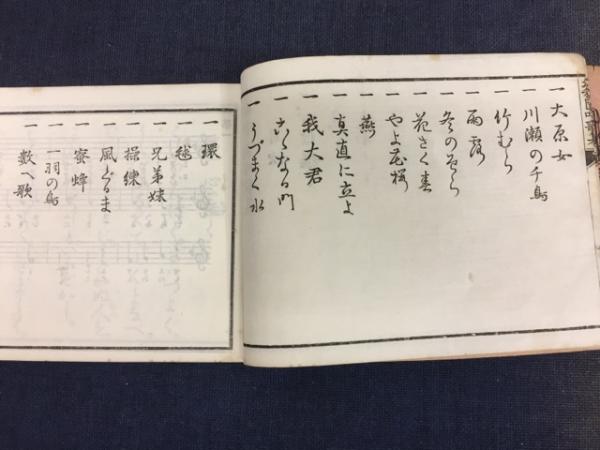 一 大原女
一 川瀬の千鳥
一 竹むら
一 雨露
一 冬のそら
一 花さく春
一 やよ花桜
一 燕
一 真直に立よ
一 我大君
一 こゝなる門
一 うづまく水
一 環
一 毬
一 兄弟妹
一 操練
一 風ぐるま
一 蜜蜂
一 一羽の鳥
一 数へ歌